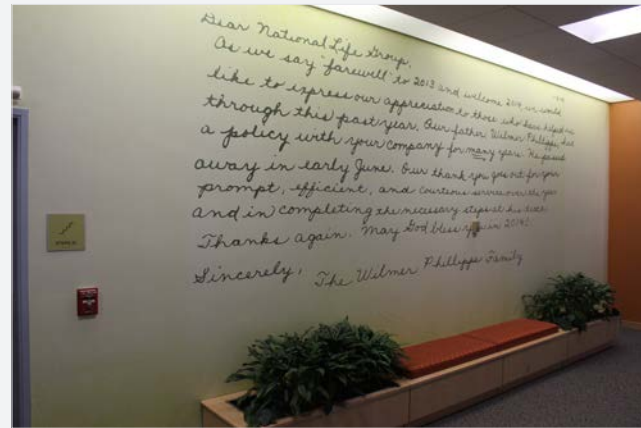 Dear National Life Group,
As we say "farewell" to 2013 and welcome 2014, we would
like to express our appreciation to those who have helped us
through this past year. Our father, Wilmer Phillipps, had
a policy with your company for many years. He passed
away in early June. Our thank you goes out for your
prompt, efficient, and courteous service over the years
and in completing the necessary steps at his death.
Thanks again. May God bless you in 2014!
Sincerely, The Wilmer Phillipps Family